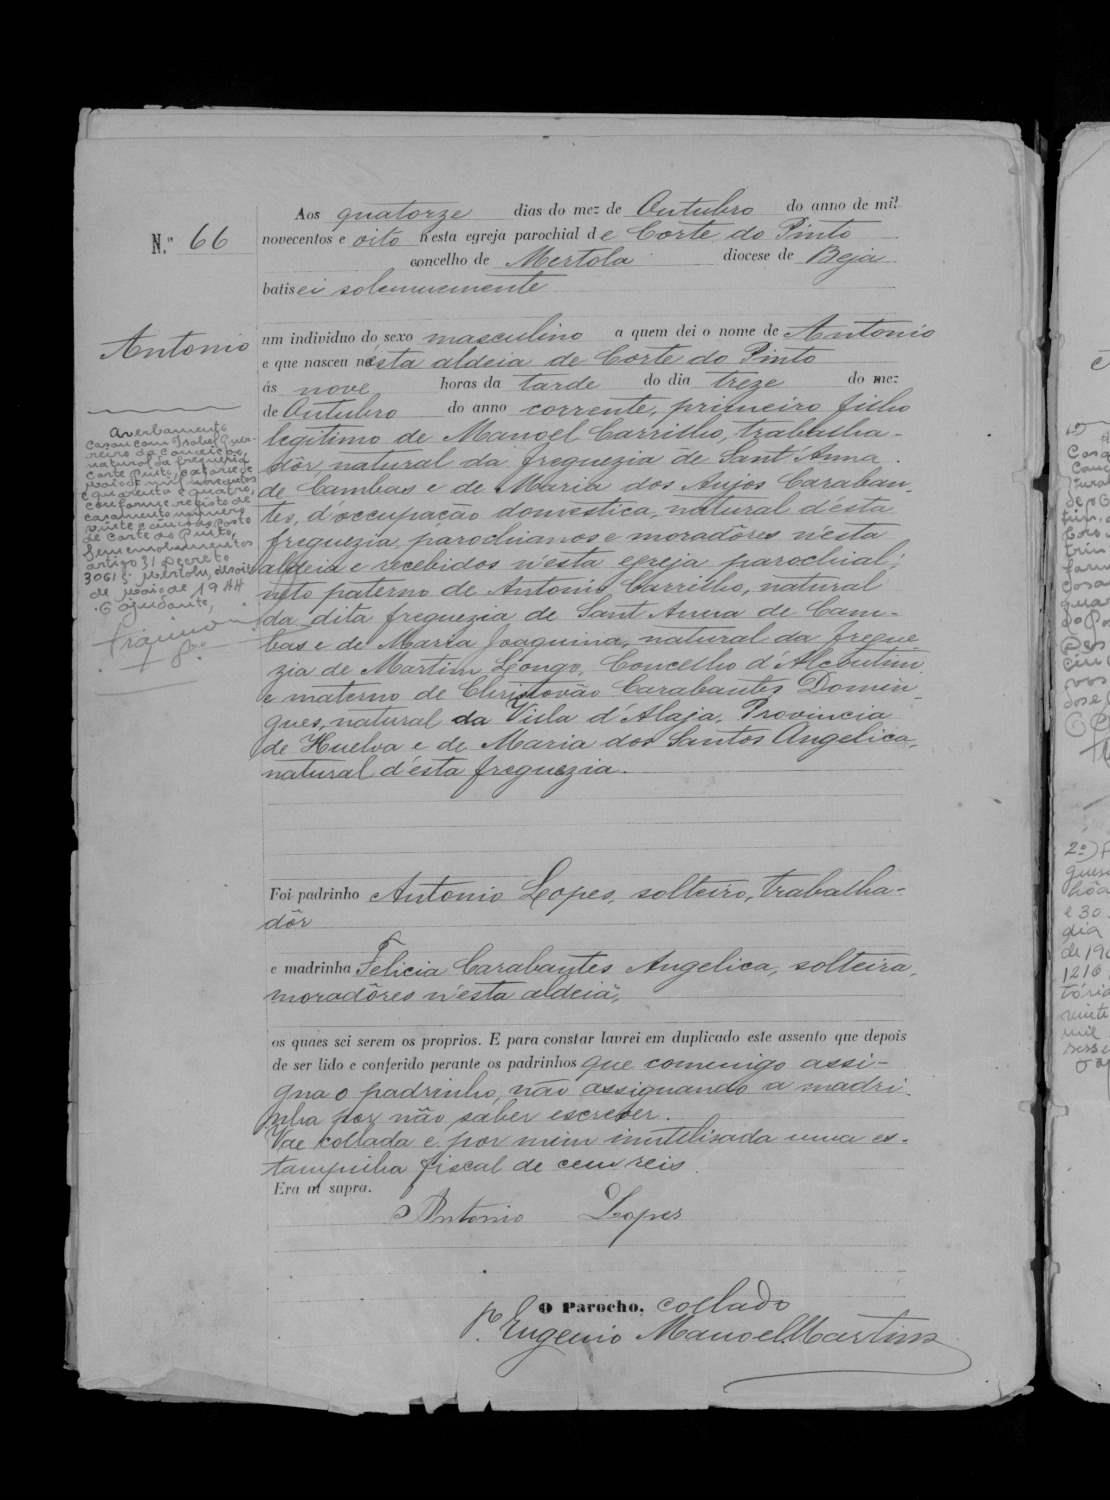 N.º 66
Antonio
Averbamento
Casou com Isabel Guer-
reiro da Conceição,
natural da freguezia
Corte Pinto, catorze de
Maio de mil novecentos
e quarenta e quatro,
conforme registo de
casamento numero
vinte e cinco do posto
de Corte do Pinto,
Sem emolumentos
artigo 31 Decreto
30615. Mertola, dezoito
de Maio de 1944
O ajudante,
Aos quatorze dias do mez de Outubro do anno de mil
novecentos e oito n'esta egreja parochial de Corte do Pinto
concelho de Mertola diocese de Beja
batisei solemnemente
um individuo do sexo masculino a quem dei o nome de Antonio
e que nasceu n'esta aldeia de Corte do Pinto
ás nove horas da tarde do dia treze do mez
de Outubro do anno corrente, primeiro filho
legitimo de Manoel Carrilho, trabalha-
dôr natural da freguezia de Sant'Anna
de Cambas e de Maria dos Anjos Caraban-
tes, d'occupação domestica, natural d'ésta
freguezia, parochianos e moradôres n'ésta
aldeia e recebidos n'ésta egreja parochial;
neto paterno de Antonio Carrilho, natural
da dita freguezia de Sant'Anna de Cam-
bas e de Maria Joaquina, natural da fregue
zia de Martim Longo, Concelho d'Alcoutim
e materno de Christovão Carabantes Domin-
gues, natural da Vila d'Alaja, Provincia
de Huelva e de Maria dos Santos Angelica,
natural d'ésta freguezia.
Foi padrinho Antonio Lopes, solteiro, trabalha-
dôr
e madrinha Felicia Carabantes Angelica, solteira,
moradôres n'ésta aldeia,
os quaes sei serem os proprios. E para constar lavrei em duplicado este assento que depois
de ser lido e conferido perante os padrinhos que commigo assi-
gna o padrinho, não assignando a madri-
nha por não saber escrever.
Vae collada e por mim inutilisada uma es-
tampilha fiscal de cem reis.
Era ut supra.
Antonio Lopes
O Parocho, collado
P. Eugenio Manoel Martins